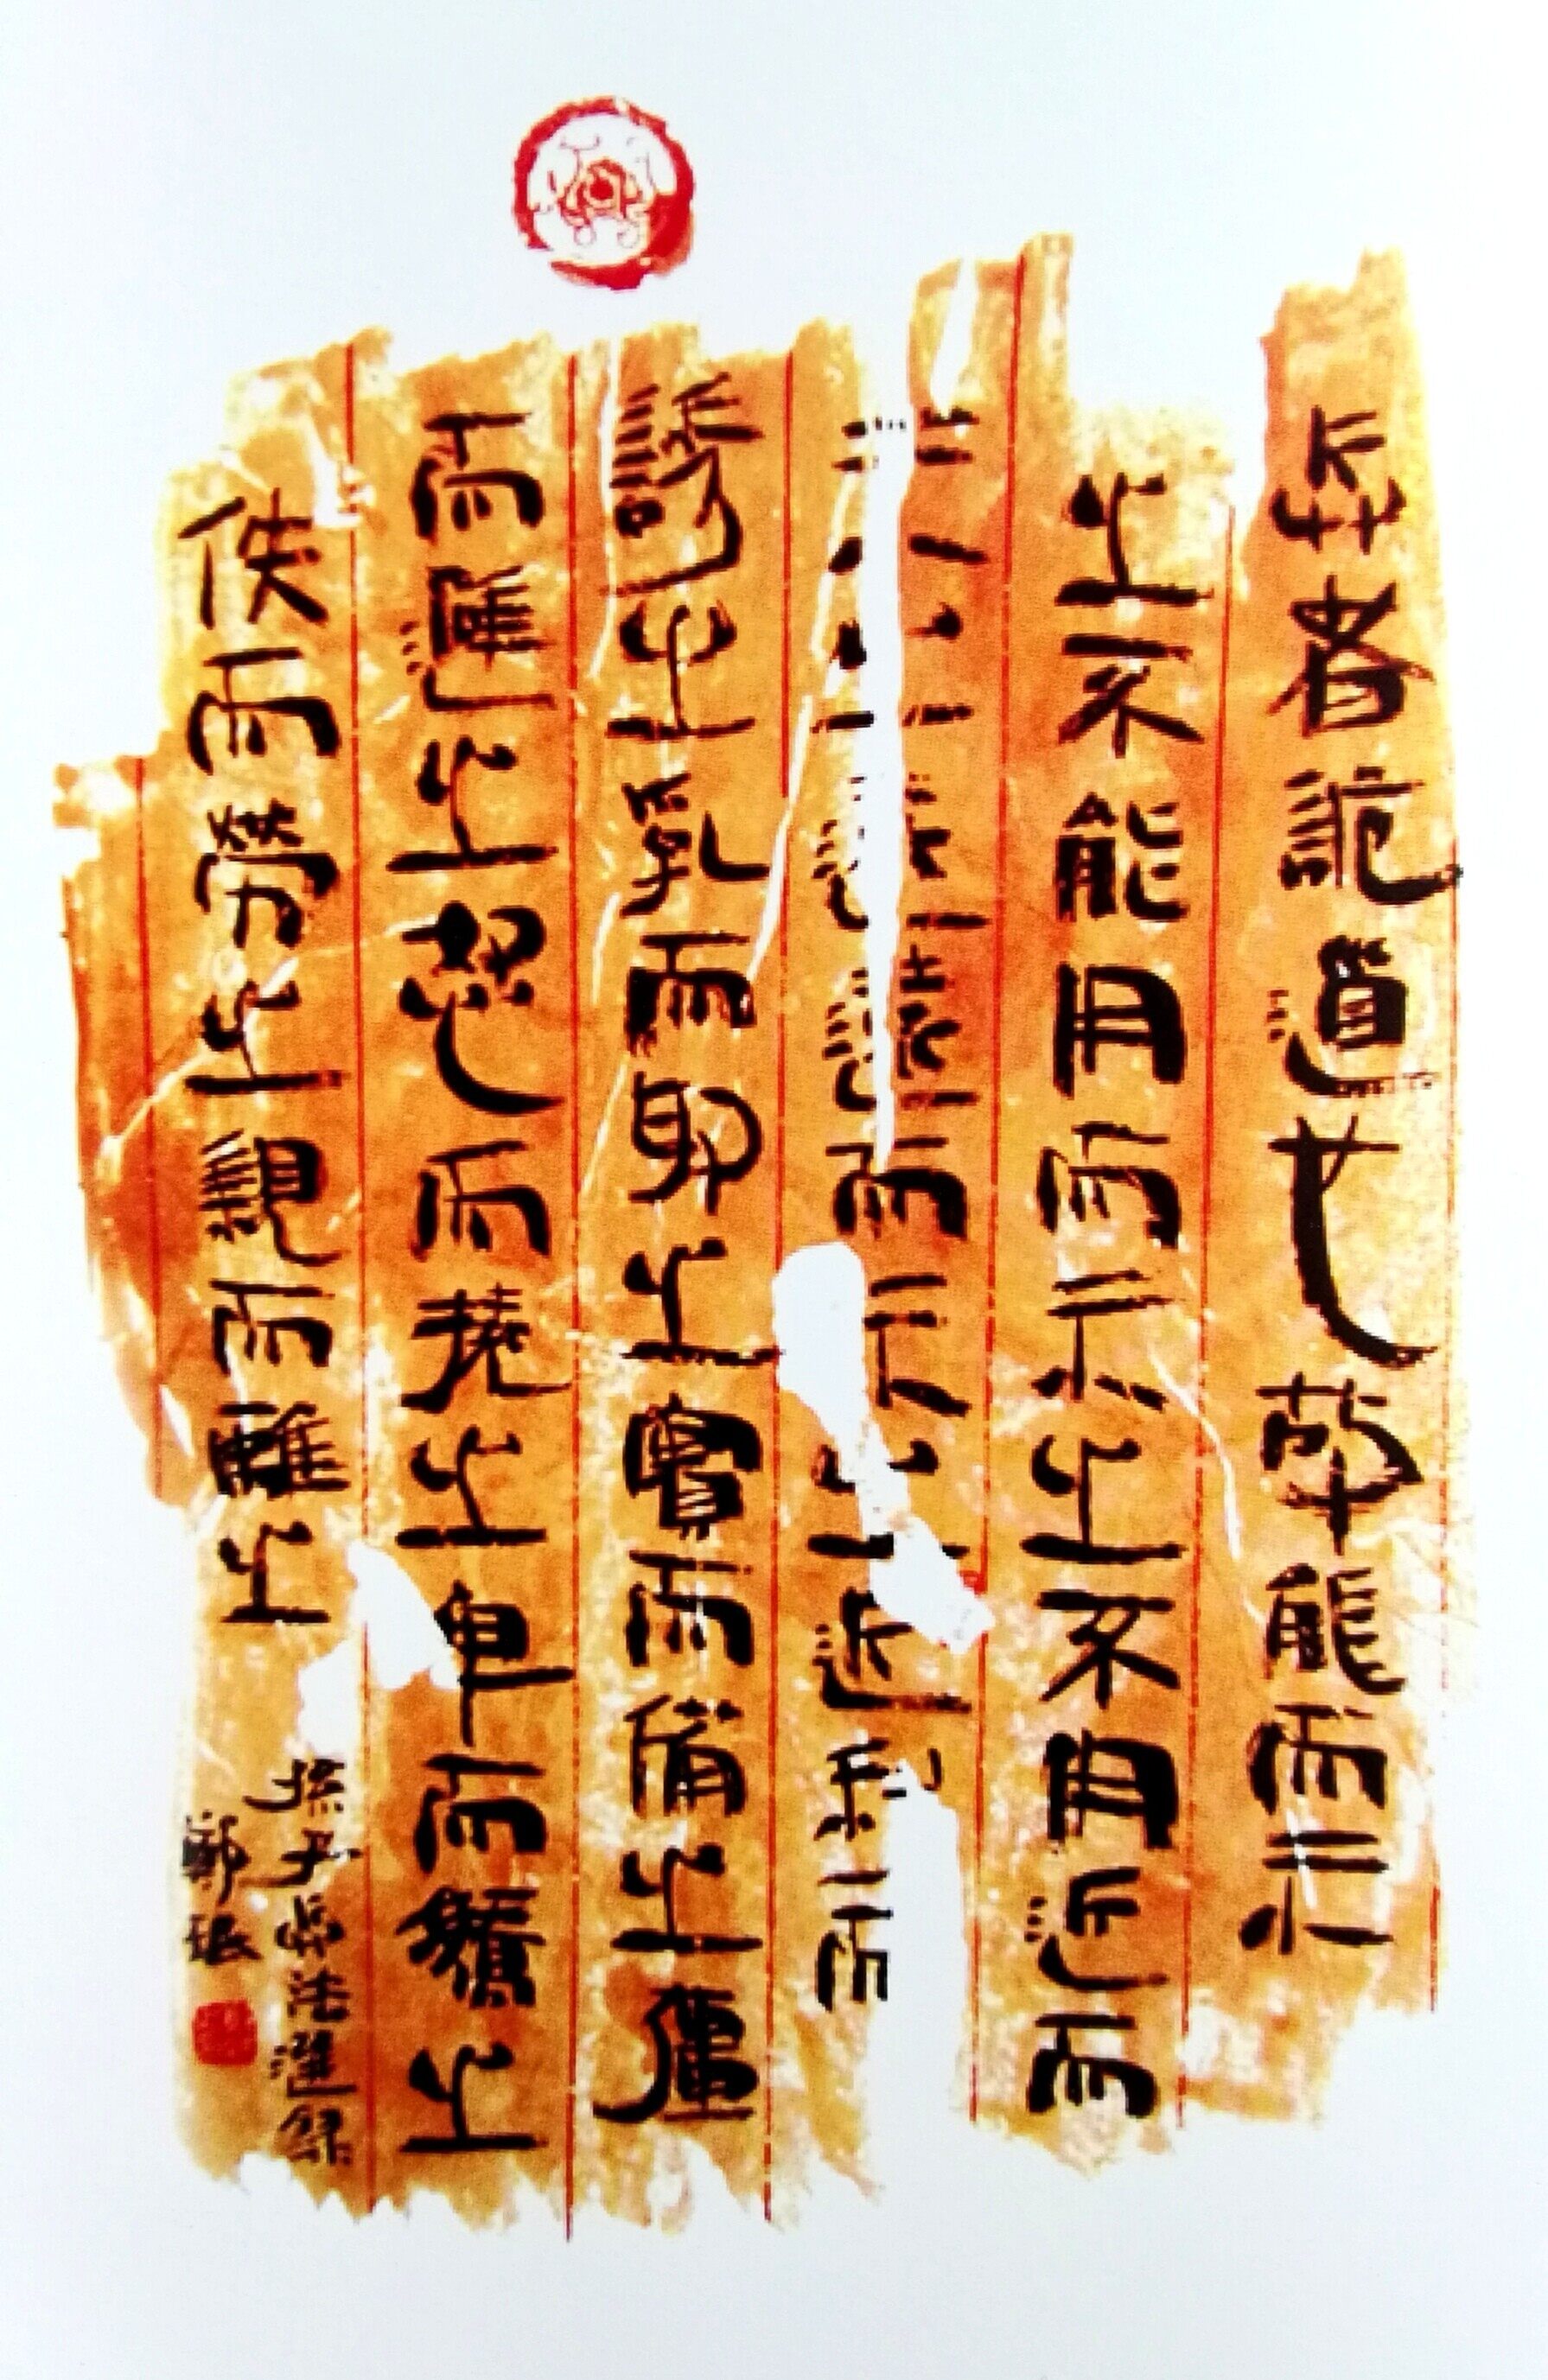 兵者詭道也故能而示
之不能用而示之不用近而
示之遠遠而示之近利而
誘之亂而取之實而備之彊
而避之怒而撓之卑而驕之
佚而勞之親而離之
孫子兵法選錄
鄭